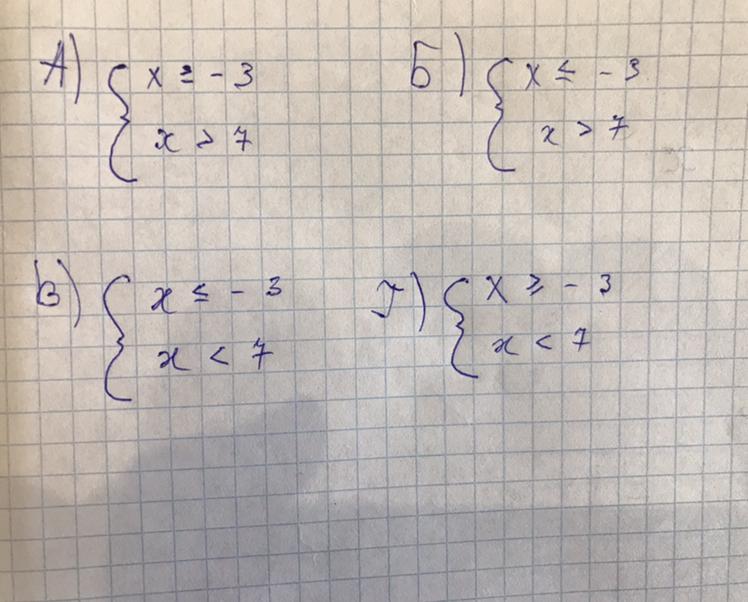 А) { x ≥ - 3
x > 7
Б) { x ≤ - 3
x > 7
В) { x ≤ - 3
x < 7
Г) { x ≥ - 3
x < 7